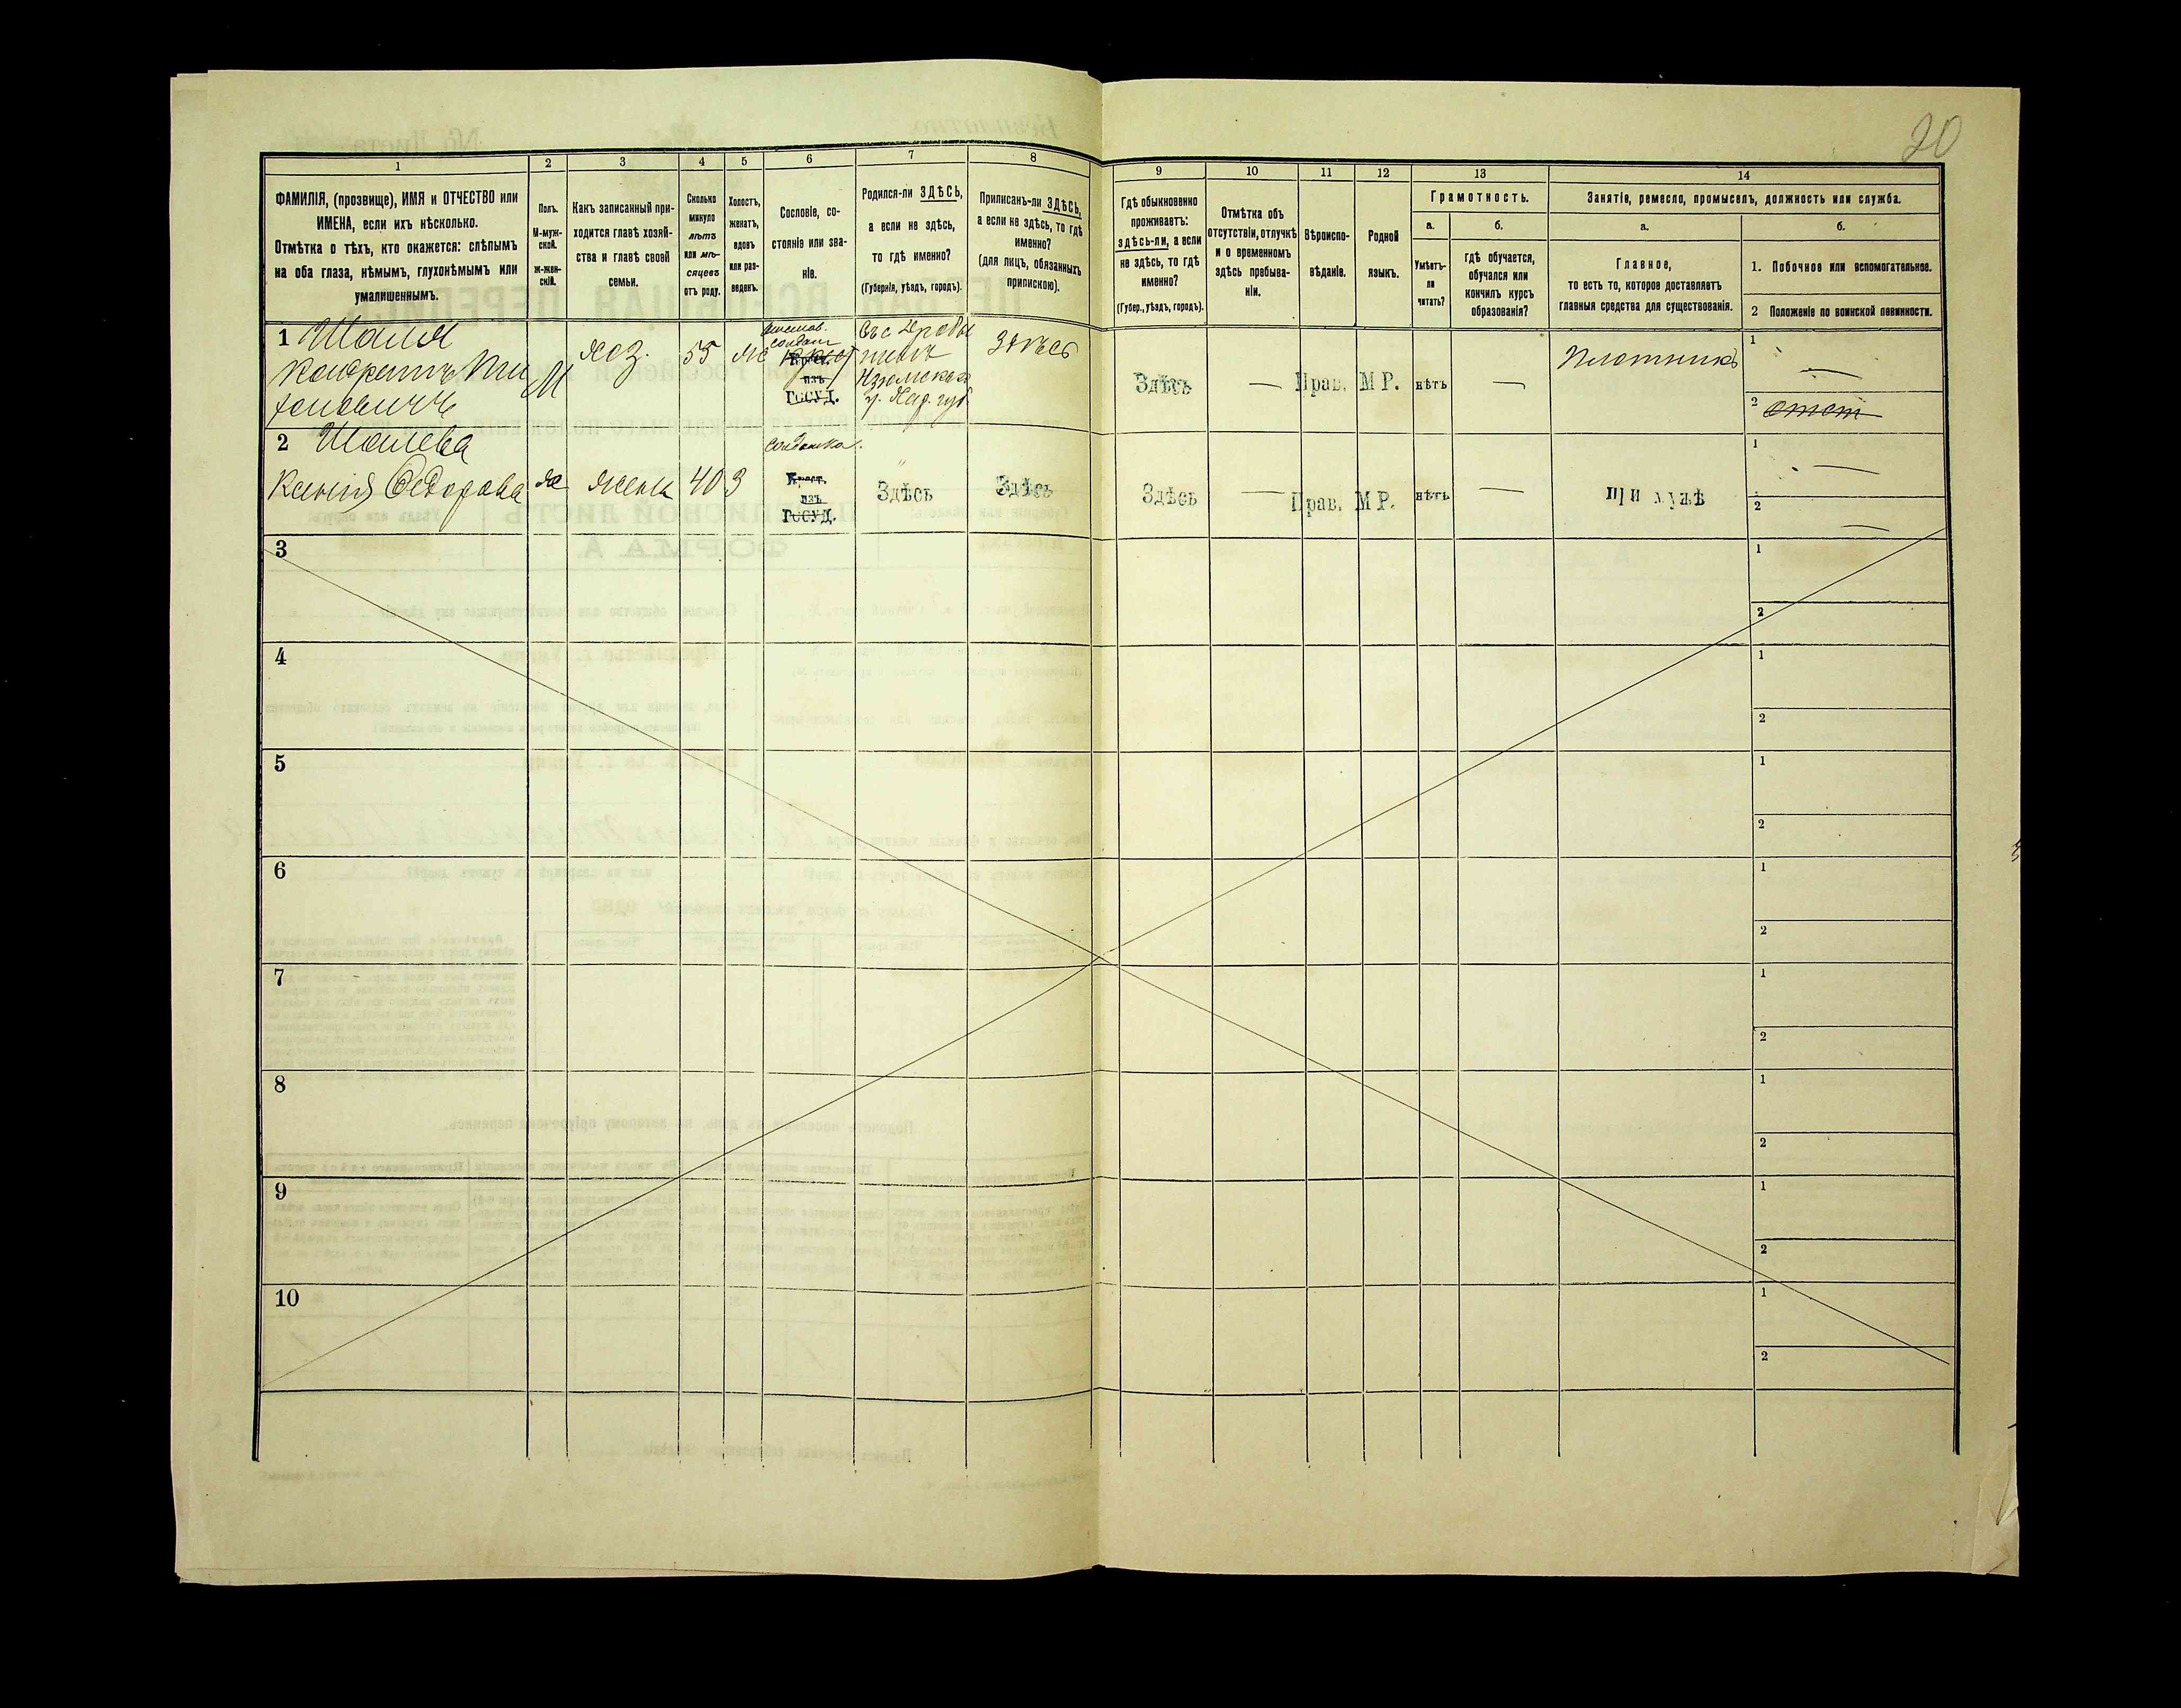 20
1
2
3
4
5
6
7
8
9
10
11
12
13
14
ФАМИЛІЯ, (прозвище), ИМЯ и ОТЧЕСТВО или
ИМЕНА, если ихъ нѣсколько.
Отмѣтка о тѣхъ, кто окажется: слѣпымъ
на оба глаза, нѣмымъ, глухонѣмымъ или
умалишеннымъ.
Полъ.
М-муж-
ской.
ж-жен-
скій.
Какъ записанный при-
ходится главѣ хозяй-
ства и главѣ своей
семьи.
Сколько
минуло
лѣтъ
или мѣ-
сяцевъ
отъ роду.
Холостъ,
женатъ,
вдовъ
или раз-
веденъ.
Сословіе, со-
стояніе или зва-
ніе.
Родился-ли ЗДѢСЬ,
а если не здѣсь,
то гдѣ именно?
(Губернія, уѣздъ, городъ).
Приписанъ-ли ЗДѢСЬ,
а если не здѣсь, то гдѣ
именно?
(для лицъ, обязанныхъ
припискою).
Гдѣ обыкновенно
проживаетъ:
здѣсь-ли, а если
не здѣсь, то гдѣ
именно?
(Губер., уѣздъ, городъ).
Отмѣтка объ
отсутствіи, отлучкѣ
и о временномъ
здѣсь пребыва-
ніи.
Вѣроиспо-
вѣданіе.
Родной
языкъ.
Грамотность.
а.
Умѣетъ-
ли
читать?
б.
гдѣ обучается,
обучался или
кончилъ курсъ
образованія?
Занятіе, ремесло, промыселъ, должность или служба.
а.
Главное,
то есть то, которое доставляетъ
главныя средства для существованія.
б.
1. Побочное или вспомогательное.
2 Положеніе по воинской повинности.
1 Шаля
Кондратъ Ти
фоновичъ
М
хоз.
55
ж
отстав.
солдат
Крест.
изъ
ГОСУД.
Въ с
Изюмскаго
у. Хар. губ
Здѣсь
Здѣсь
—
Прав.
МР.
нѣтъ
—
Плотникъ
1
—
2
2 Шалева
Ксенія Ѳедорова
ж
жена
40
З
солдатка.
Крест.
изъ
ГОСУД.
Здѣсь
Здѣсь
Здѣсь
—
Прав.
МР.
нѣтъ
—
при мужѣ
1
—
2
—
3
1
2
4
1
2
5
1
2
6
1
2
7
1
2
8
1
2
9
1
2
10
1
2